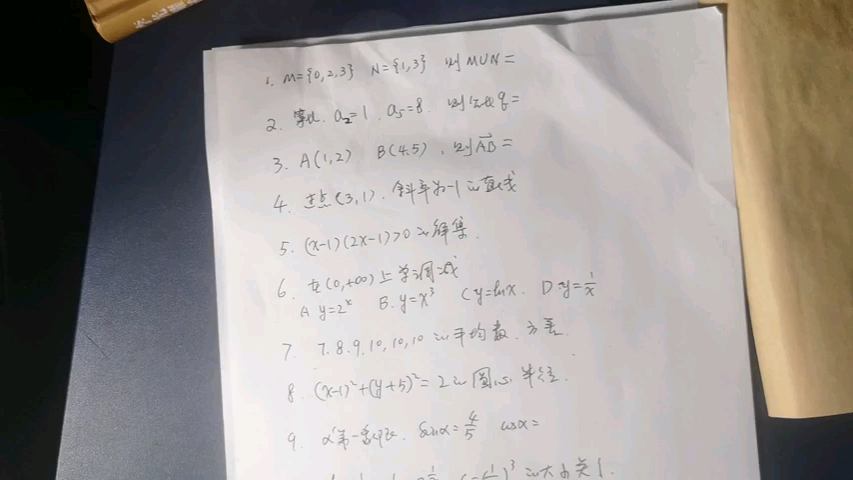 1. M={0,2,3} N={1,3} 则MUN=
2. 等比. a₂=1. a₅=8. 则公比q=
3. A(1,2) B(4.5). 则AB=
4. 过点(3,1). 斜率为-1的直线
5. (x-1)(2x-1)>0的解集.
6. 在(0,+∞)上单调减
A y=2ˣ B. y=x³ C y=lnx. D.y=1/x
7. 7.8.9.10,10,10的平均数.方差.
8. (x-1)²+(y+5)²=2的圆心.半径.
9. α第一象限. sinα=4/5 cosα=
)³的大小关